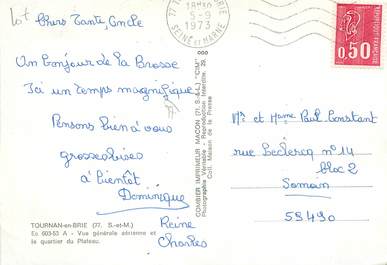 Chers Tante, Oncle
Un bonjour de la Brosse
Ici un temps magnifique
Pensons bien à vous
grosses bises
à bientôt
Dominique
Reine
Charles
TOURNAN-en-BRIE (77. S.-et-M.)
Ec 603-53 A - Vue générale aérienne et
le quartier du Plateau.
COMBIER IMPRIMEUR MACON (71. S.-&-L.) "CIM"
Photographie Véritable - Reproduction Interdite.
Coll. Maison de la Presse
18H30
5-9
1973
SEINE ET MARNE
0,50
Mr et Mame Paul Constant
rue Leclercq n° 14
bloc 2
Somain
59490